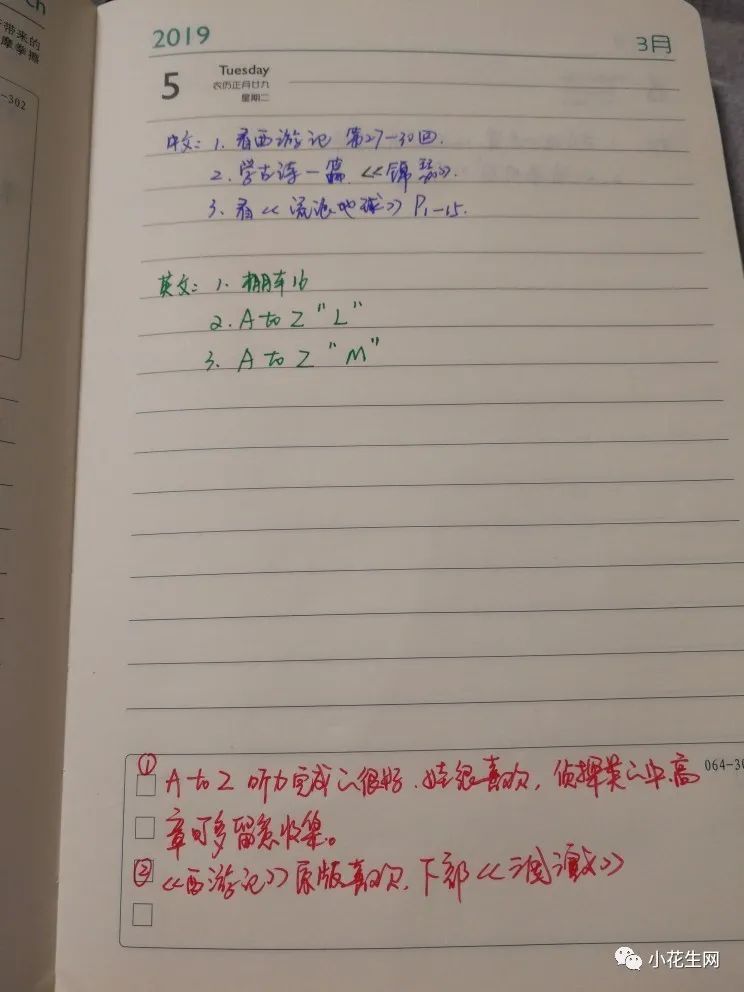 ch
带来的
摩拳擦
-302
2019
3月
5
Tuesday
农历正月廿九
星期二
中文: 1. 看西游记 第27-30回.
2. 学古诗一篇 《锦瑟》.
3. 看《流浪地球》 P1-15.
英文: 1. 棚车16
2. A to Z "L"
3. A to Z "M"
064-30
① A to Z 听力完成的很好. 娃很喜欢, 侦探类的中.高
章可多留意收集。
② 《西游记》原版喜欢. 下部《三国演义》
小花生网